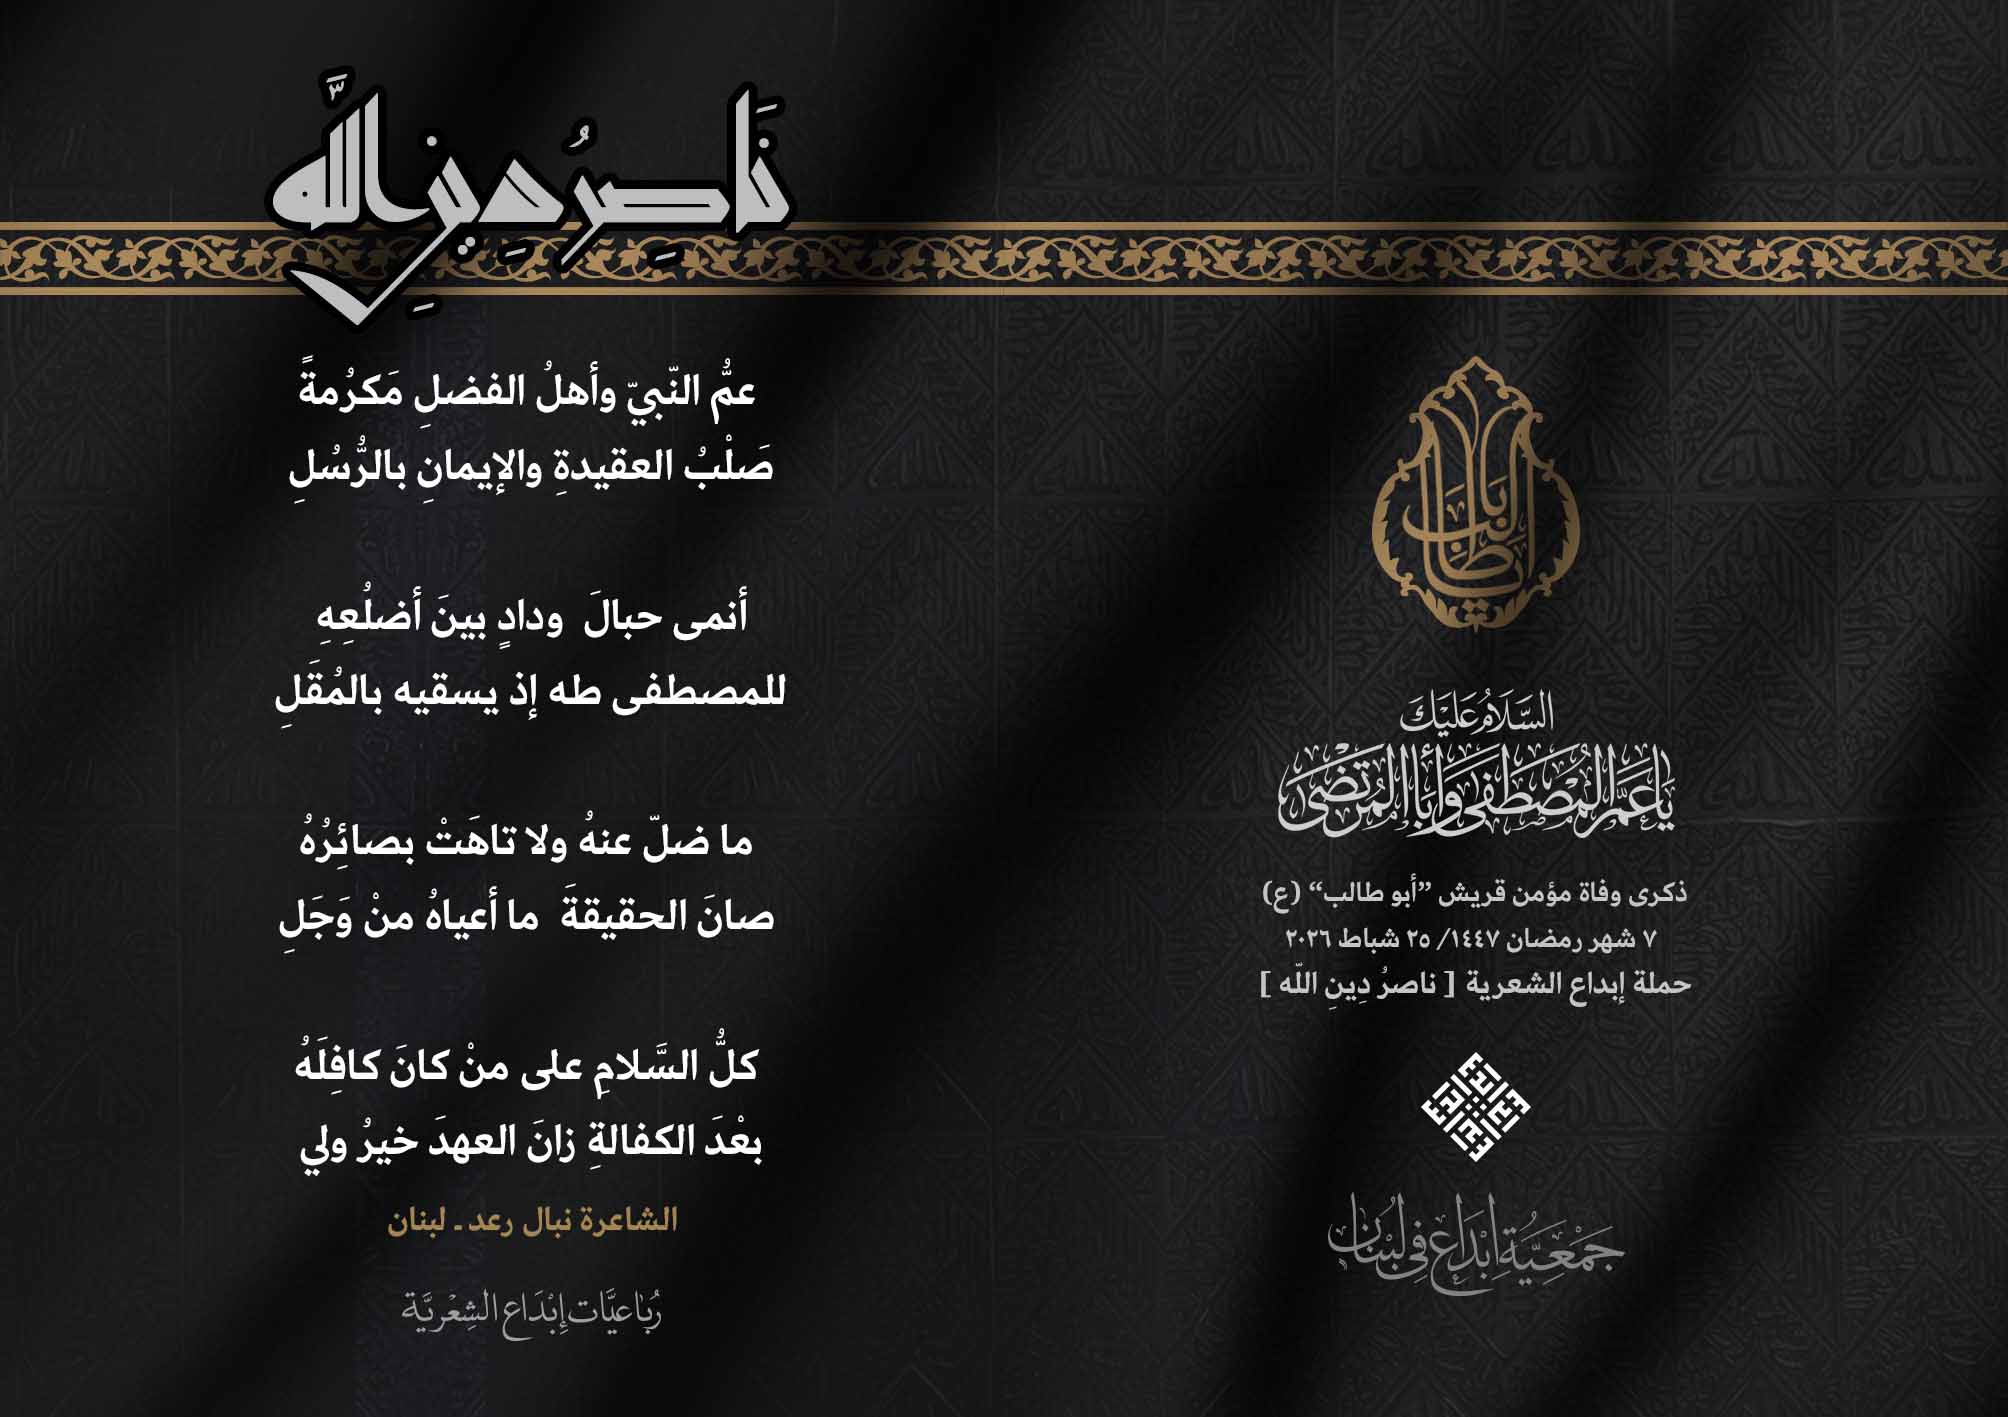 نَاصِرُ دِينِ اللَّه
عمُّ النّبيّ وأهلُ الفضلِ مَكرُمةً
صَلْبُ العقيدةِ والإيمانِ بالرُّسُلِ
أنمى حبالَ ودادٍ بينَ أضلُعِهِ
للمصطفى طه إذ يسقيه بالمُقَلِ
ما ضلّ عنهُ ولا تاهَتْ بصائِرُهُ
صانَ الحقيقةَ ما أعياهُ منْ وَجَلِ
كلُّ السَّلامِ على منْ كانَ كافِلَهُ
بعْدَ الكفالةِ زانَ العهدَ خيرُ ولي
الشاعرة نبال رعد ـ لبنان
رُبَاعيَّات إِبْدَاع الشِعْريَّة
يَا أَبَا طَالِب
السَّلَامُ عَلَيْكَ
يَا عَمَّ الْمُصْطَفَى وَأَبَا الْمُرْتَضَى
ذكرى وفاة مؤمن قريش ”أبو طالب“ (ع)
٧ شهر رمضان ١٤٤٧/ ٢٥ شباط ٢٠٢٦
حملة إبداع الشعرية [ ناصرُ دِينِ اللّه ]
جَمْعِيَّةُ إِبْدَاع فِي لُبْنَان